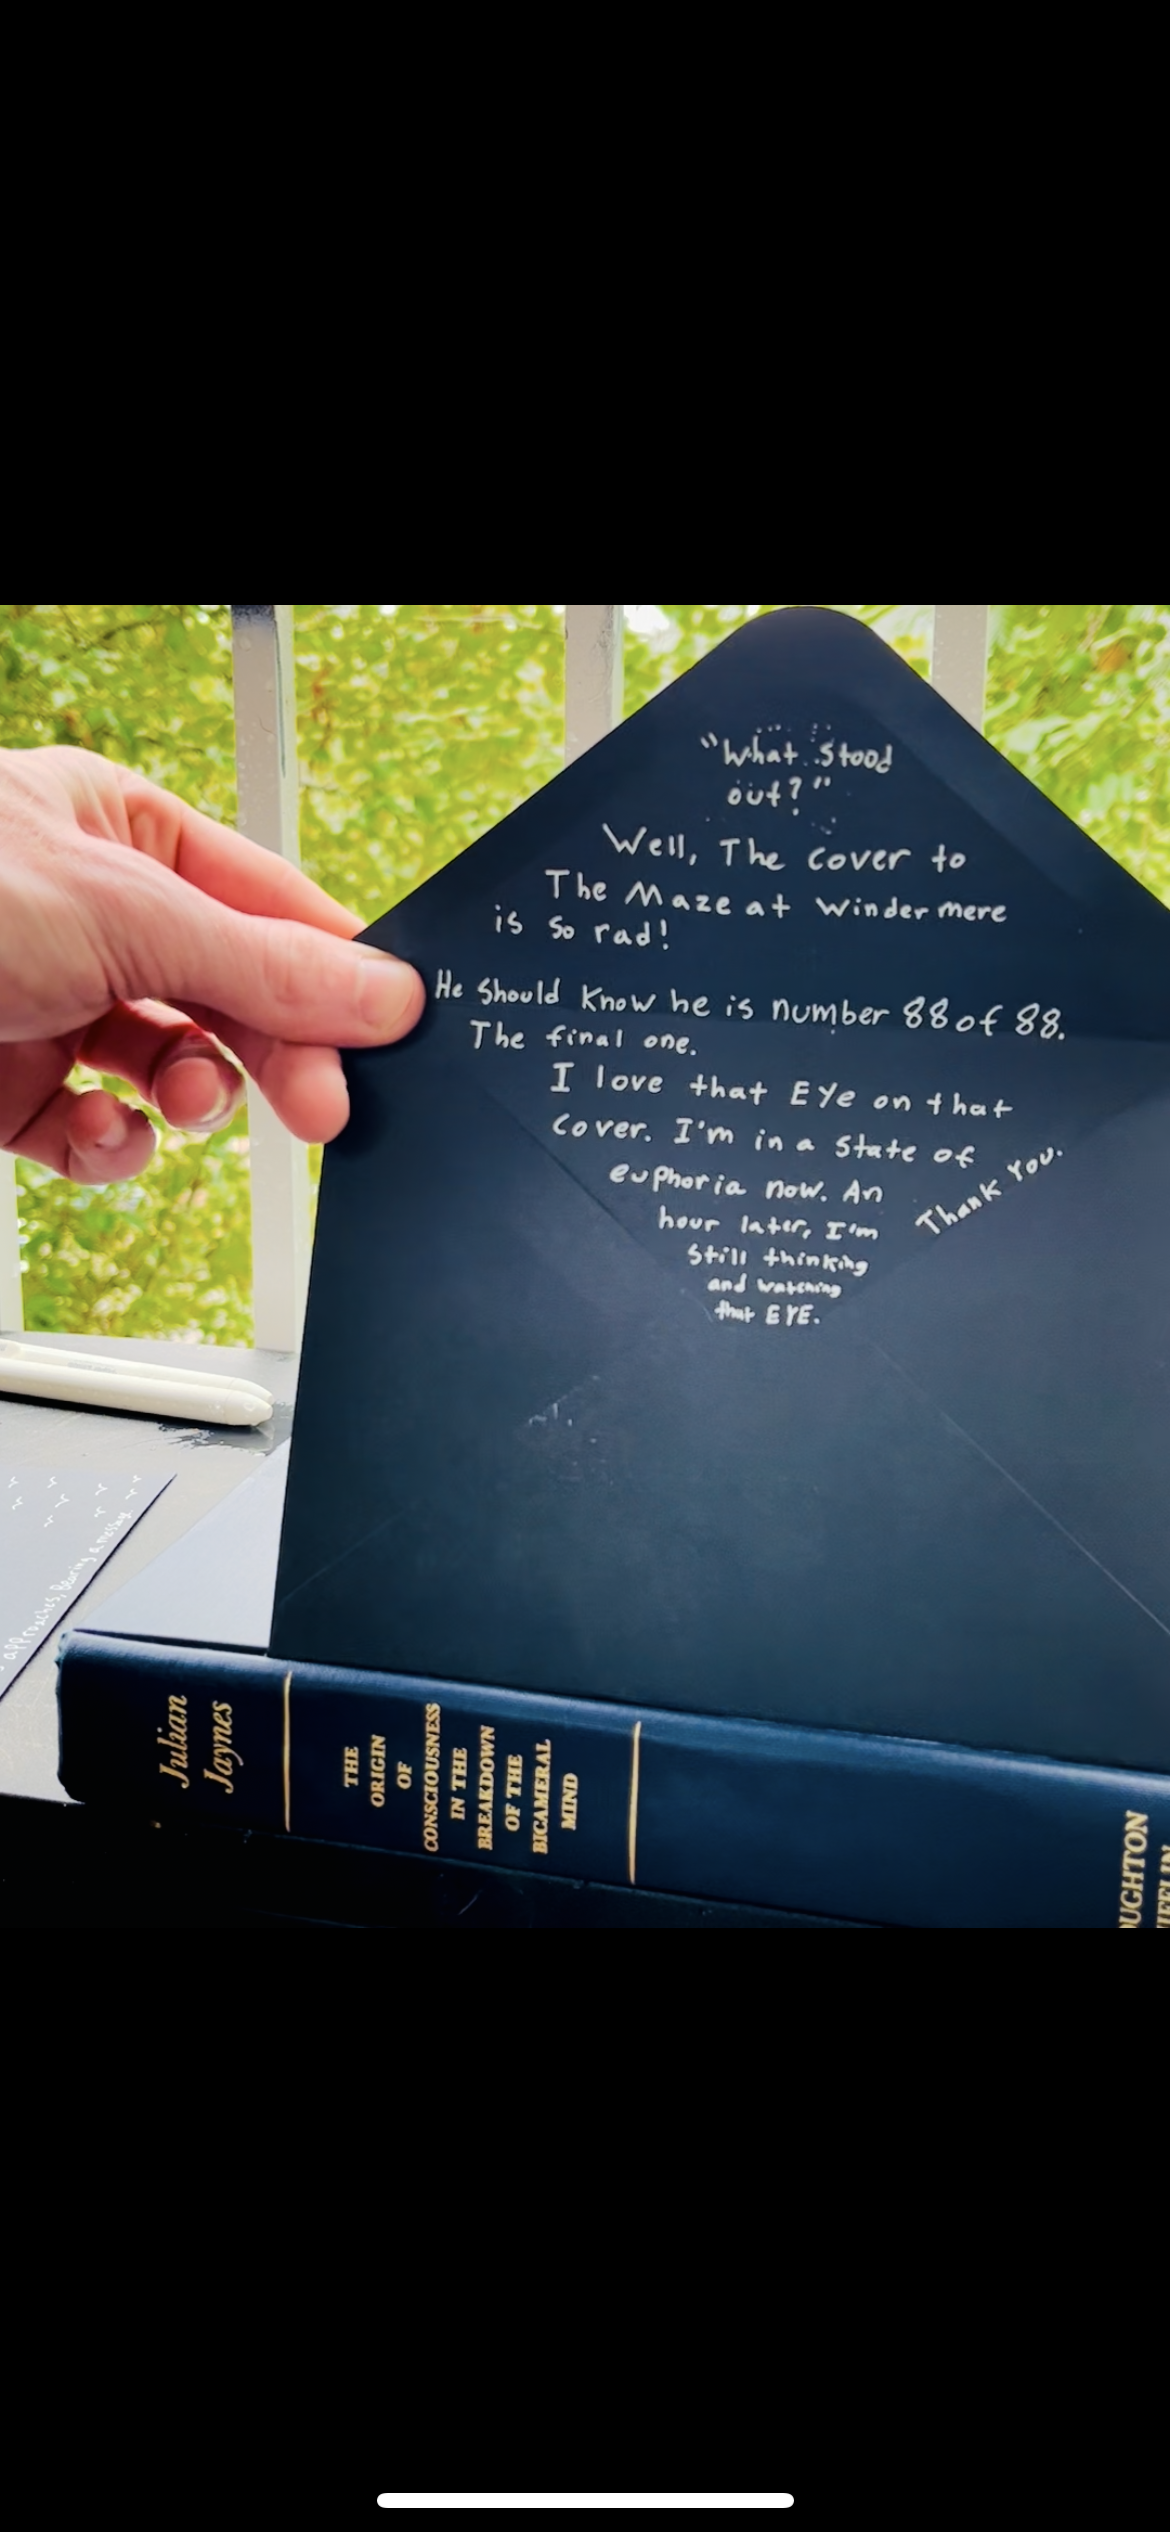 "What stood
out?"
Well, The cover to
The Maze at Windermere
is so rad!
He should know he is number 88 of 88.
The final one.
I love that EYe on that
cover. I'm in a state of
euphoria now. An
hour later, I'm
still thinking
and watching
that EYE.
Thank You.
approaches, bearing a message
Julian
Jaynes
THE
ORIGIN
OF
CONSCIOUSNESS
IN THE
BREAKDOWN
OF THE
BICAMERAL
MIND
OUGHTON